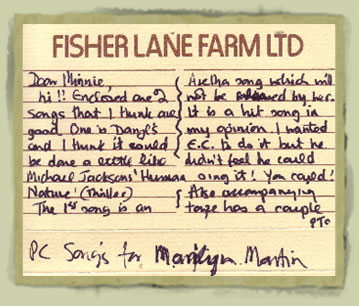 FISHER LANE FARM LTD
Dear Minnie,
hi!! Enclosed are 2
songs that I think are
good. One is Daryl's
and I think it could
be done a little like
Michael Jacksons' Human
Nature' (Thriller)
The 1st song is an
Aretha song which will
not be released by her.
It is a hit song in
my opinion I wanted
E.C. to do it but he
didn't feel he could
sing it! You could!
Also accompanying
tape has a couple
PTO
PC Songs for Marilyn Martin